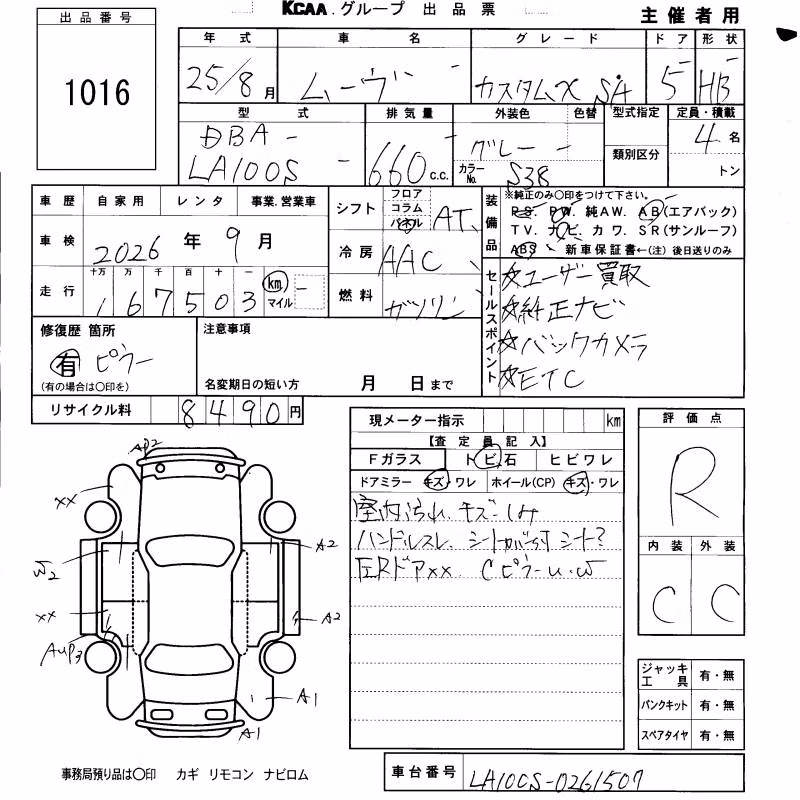 KCAA.グループ 出品票
主催者用
出品番号
1016
年式 車名 グレード ドア 形状
25/8月 ムーヴ カスタムX SA 5 HB
型式 排気量 外装色 色替 型式指定 定員・積載
DBA- 660c.c. グレー 4名
LA100S カラーNo. S38 類別区分 トン
車歴 自家用 レンタ 事業.営業車
シフト フロア コラム パネル AT
装備品 ※純正のみ〇印をつけて下さい。
P.S. P.W. 純AW. AB(エアバック)
TV. ナビ. カワ. SR(サンルーフ)
ABS 新車保証書←(注)後日送りのみ
車検 2026年9月
冷房 AAC
走行 十万 万 千 百 十 一
167503 km マイル
燃料 ガソリン
セールスポイント
☆ユーザー買取
☆純正ナビ
☆バックカメラ
☆ETC
修復歴 箇所
有 ピラー
(有の場合は〇印を)
注意事項
名変期日の短い方 月 日まで
リサイクル料 8490円
現メーター指示 km
【査定員記入】
Fガラス トビ石 ヒビワレ
ドアミラー キズ・ワレ ホイール(CP) キズ・ワレ
室内汚れ、キズ、しみ
ハンドルスレ、シートガバ付 シート?
左Rドアxx. Cピラーu.w
評価点
R
内装 外装
C C
AP2
xx
W2
xx
AuP3
A2
A2
A1
A1
ジャッキ工具 有・無
パンクキット 有・無
スペアタイヤ 有・無
事務局預り品は〇印 カギ リモコン ナビロム
車台番号 LA100S-0261507